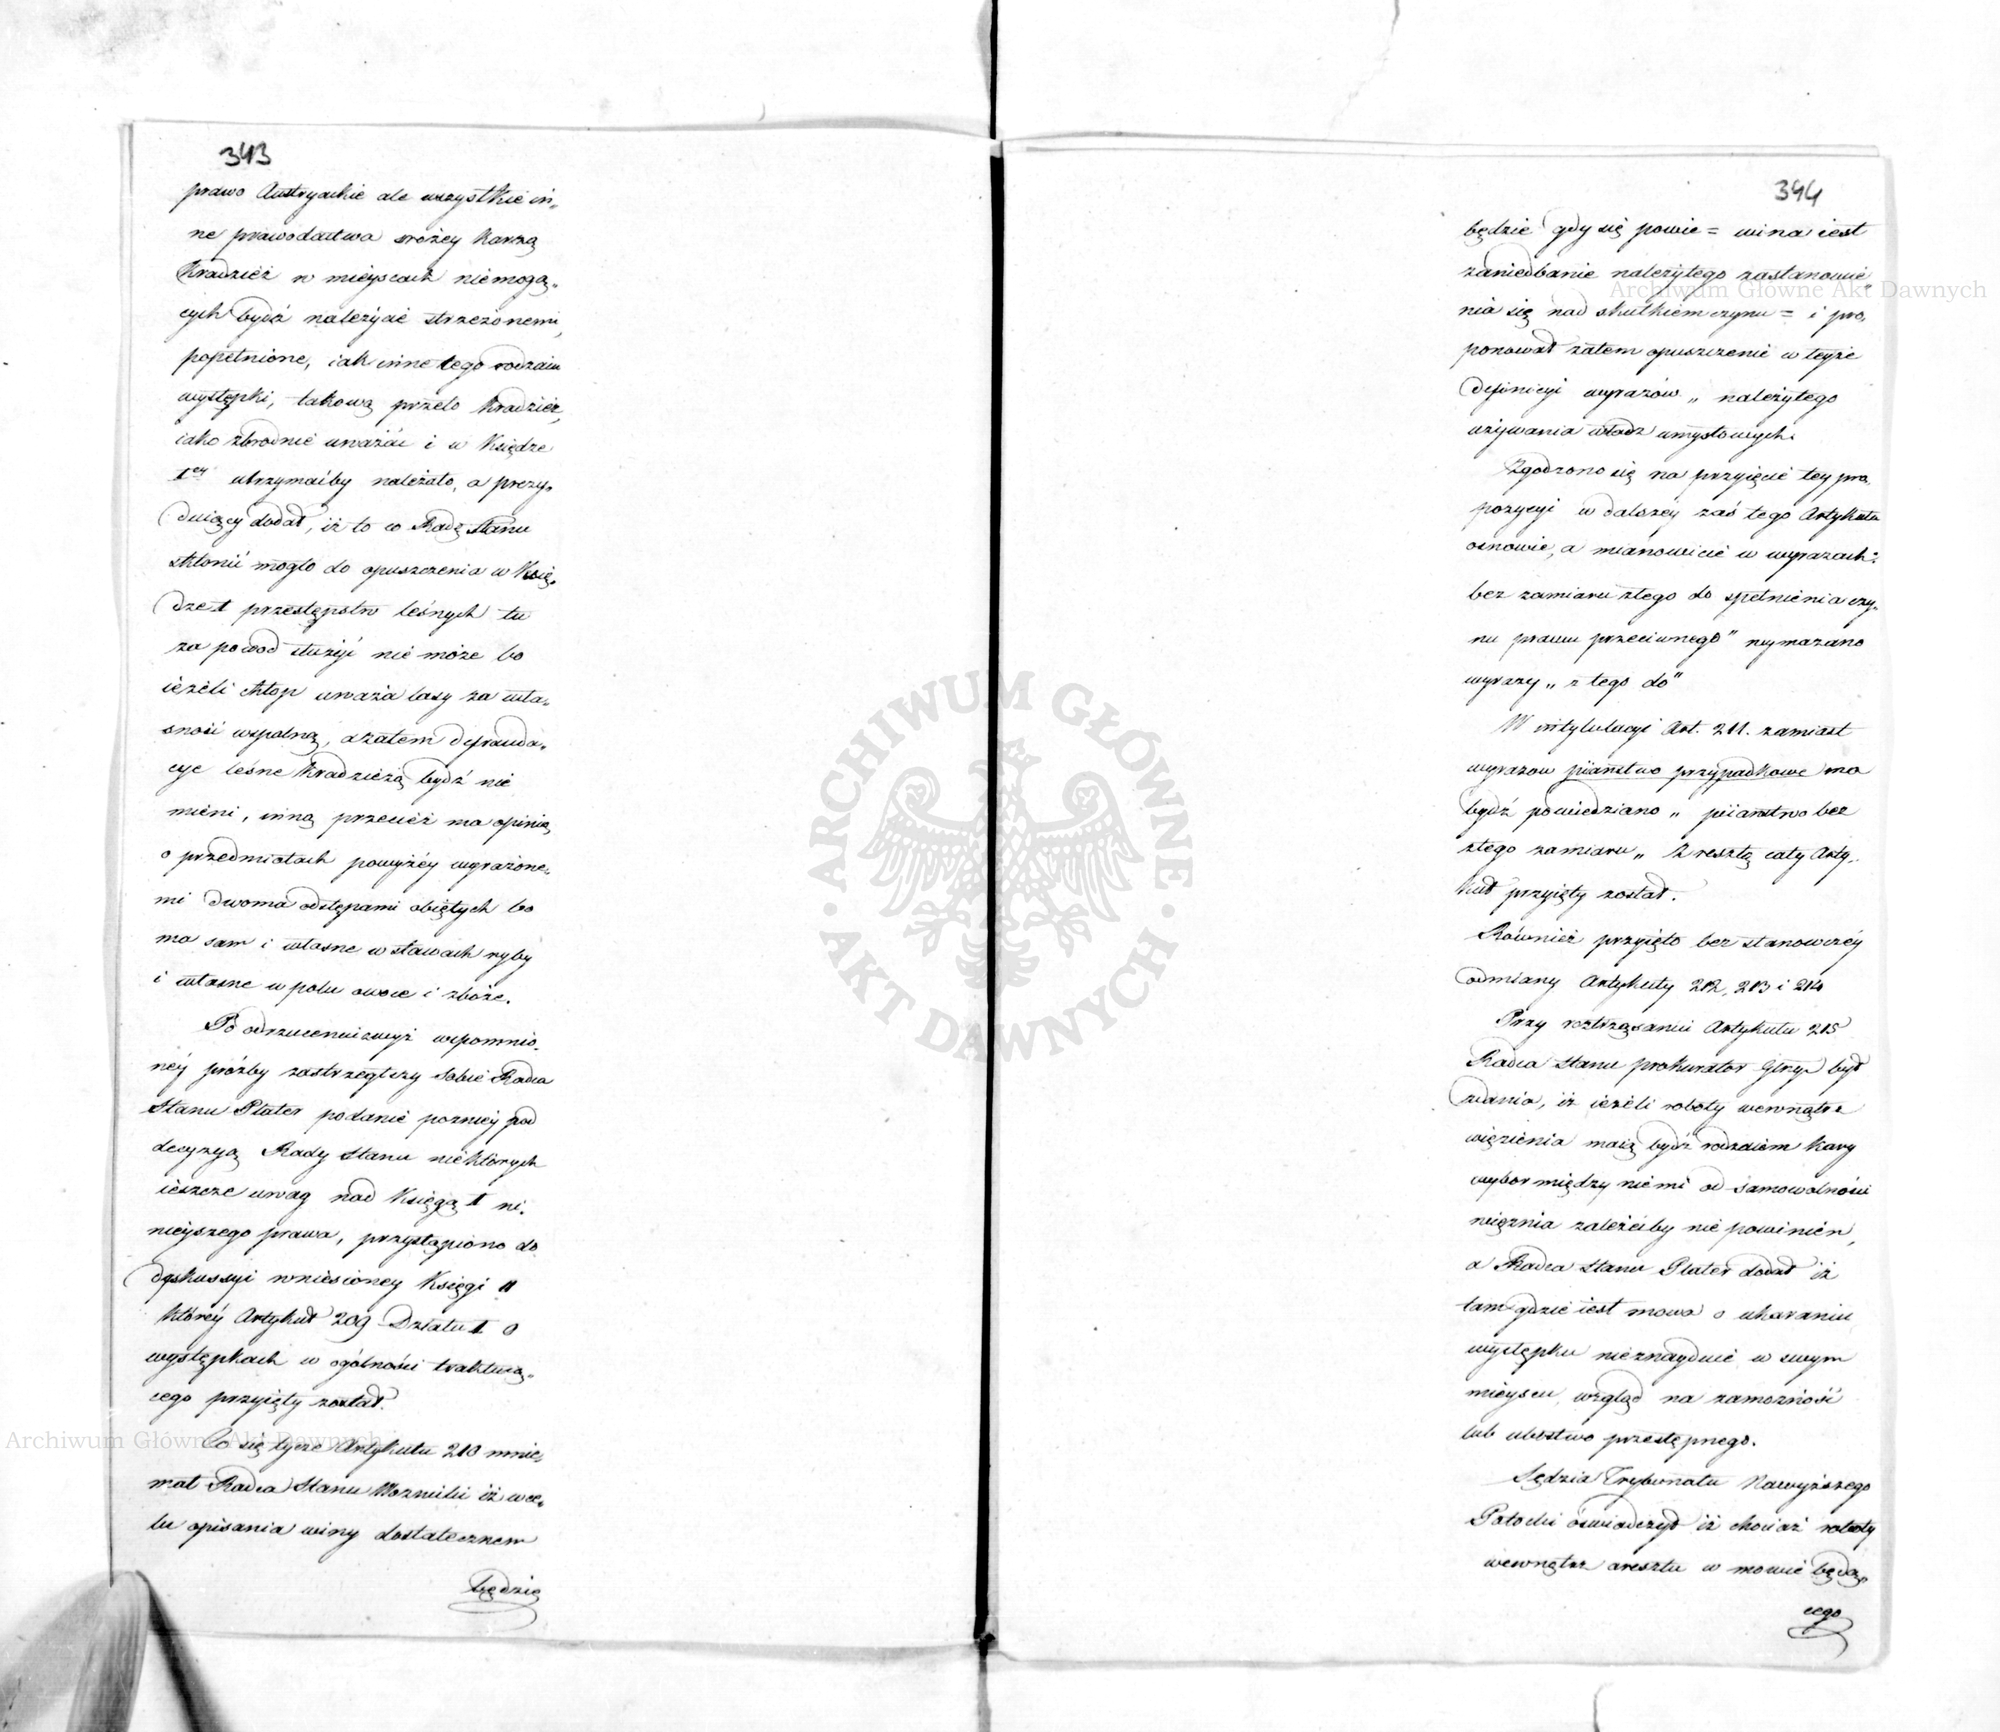 343
prawo Austryackie ale wszystkie in„
ne prawodactwa srożey karzą
Kradzież w mieyscach niemogą„
cych bydź należycie strzeżonemi,
popełnione, iak inne tego rodzaiu
występki, takową przeto kradzież,
iako zbrodnie uważać i w Księdze
1ey utrzymaćby należało, a prezy„
duiący dodał, iż to co Radę Stanu
skłonić mogło do opuszczenia w Księ„
dze I przestępstw leśnych tu
za powod służyć nie może bo
ieżeli chłop uważa lasy za wła„
sność wspolną, a zatem defrauda„
cye leśne kradzieżą bydź nie
mieni, inną przecież ma opinią
o przedmiotach powyżéy wyrażone„
mi dwoma odstępami obiętych bo
ma sam i własne w stawach ryby
i własne w polu owoce i zboże.
Po odrzuceniu zwyż wspomnio„
néy prośby zastrzegłszy sobie Radca
Stanu Plater podanie poźniéy pod
decyzyą Rady Stanu niektórych
ieszcze uwag nad Księgą I ni„
nieyszego prawa, przystąpiono do
dyskussyi wniesioney Księgi II
któréy Artykuł 209 Działu I o
występkach w ogólności traktuią„
cego przyięty został.
Co się tycze Artykułu 210 mnie„
mał Radca Stanu Woznicki iż w ce„
lu opisania winy dostatecznem
będzie
344
będzie gdy się powie = wina iest
zaniedbanie należytego zastanowie„
nia się nad skutkiem czynu = i pro„
ponował zatem opuszczenie w teyże
definicyi wyrazów „ należytego
używania władz umysłowych.
Zgodzono się na przyięcie tey pro„
pozycyi w dalszey zaś tego Artykułu
osnowie, a mianowicie w wyrazach:
bez zamiaru złego do spełnienia czy„
nu prawu przeciwnego" wymazano
wyrazy „ złego do"
W intytulacyi Art. 211. zamiast
wyrazow piiaństwo przypadkowe ma
bydź powiedziano „ piiaństwo bez
złego zamiaru „ Z resztą cały Arty„
kuł przyięty został.
Również przyięto bez stanowczéy
odmiany Artykuły 212, 213 i 214
Przy roztrząsaniu Artykułu 215
Radca Stanu prokurator Glny był
zdania, iż ieżeli roboty wewnątrz
więzienia maią bydź rodzaiem kary
wybor między niemi od samowolności
więźnia zależéćby nie powinien,
a Radca Stanu Plater dodał iż
tam gdzie iest mowa o ukaraniu
występku nieznayduie w swym
mieyscu, wzgląd na zamożność
lub ubóstwo przestępnego.
Sędzia Trybunału Naywyższego
Potocki oświadczył iż chociaż roboty
wewnątrz aresztu w mowie będą„
cego
Archiwum Główne Akt Dawnych
Archiwum Główne Akt Dawnych
ARCHIWUM GŁÓWNE
AKT DAWNYCH